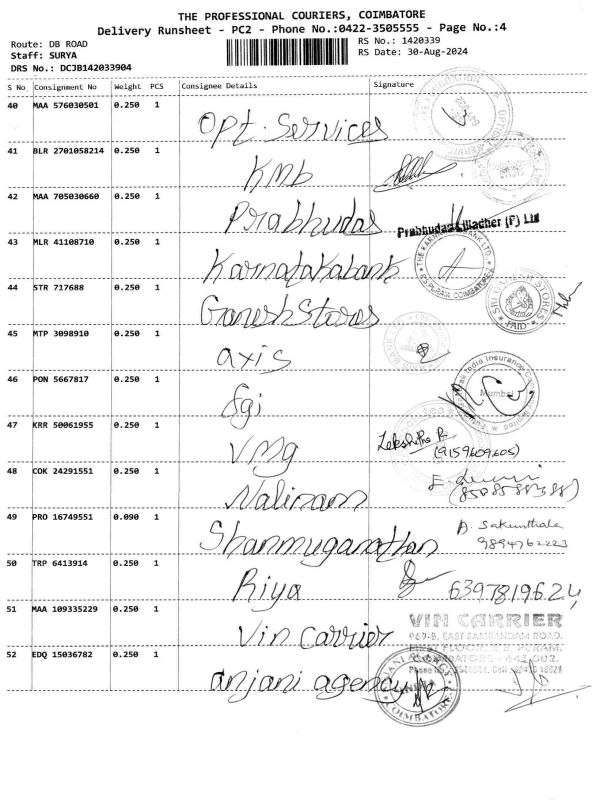 THE PROFESSIONAL COURIERS, COIMBATORE
Delivery Runsheet - PC2 - Phone No.:0422-3505555 - Page No.:4
Route: DB ROAD
Staff: SURYA
DRS No.: DCJB142033904
RS No.: 1420339
RS Date: 30-Aug-2024
S No Consignment No Weight PCS Consignee Details Signature
40 MAA 576030501 0.250 1 Opt. Services
41 BLR 2701058214 0.250 1 KMb
42 MAA 705030660 0.250 1 Prabhudas Prabhudas Lilladher (P) Ltd
43 MLR 41108710 0.250 1 Karnatakabank THE KARNATAKA BANK LTD. R.S PURAM, COIMBATORE
44 STR 717688 0.250 1 Ganesh Stores SRI GANESH STORES PAID
45 MTP 3098910 0.250 1 axis
46 PON 5667817 0.250 1 fgi India Insurance Mumbai
47 KRR 50061955 0.250 1 VMg (9159609605)
48 COK 24291551 0.250 1 Nalinam
49 PRO 16749551 0.090 1 Shanmuganathan A. Sakunthala
9894762223
50 TRP 6413914 0.250 1 Riya 6397819624
51 MAA 109335229 0.250 1 Vin Carrier VIN CARRIER
969-B, EAST SAMBANDAM ROAD,
FIRST FLOOR, R.S. PURAM,
COIMBATORE - 641 002.
52 EDQ 15036782 0.250 1 anjani agency ANJANI COIMBATORE